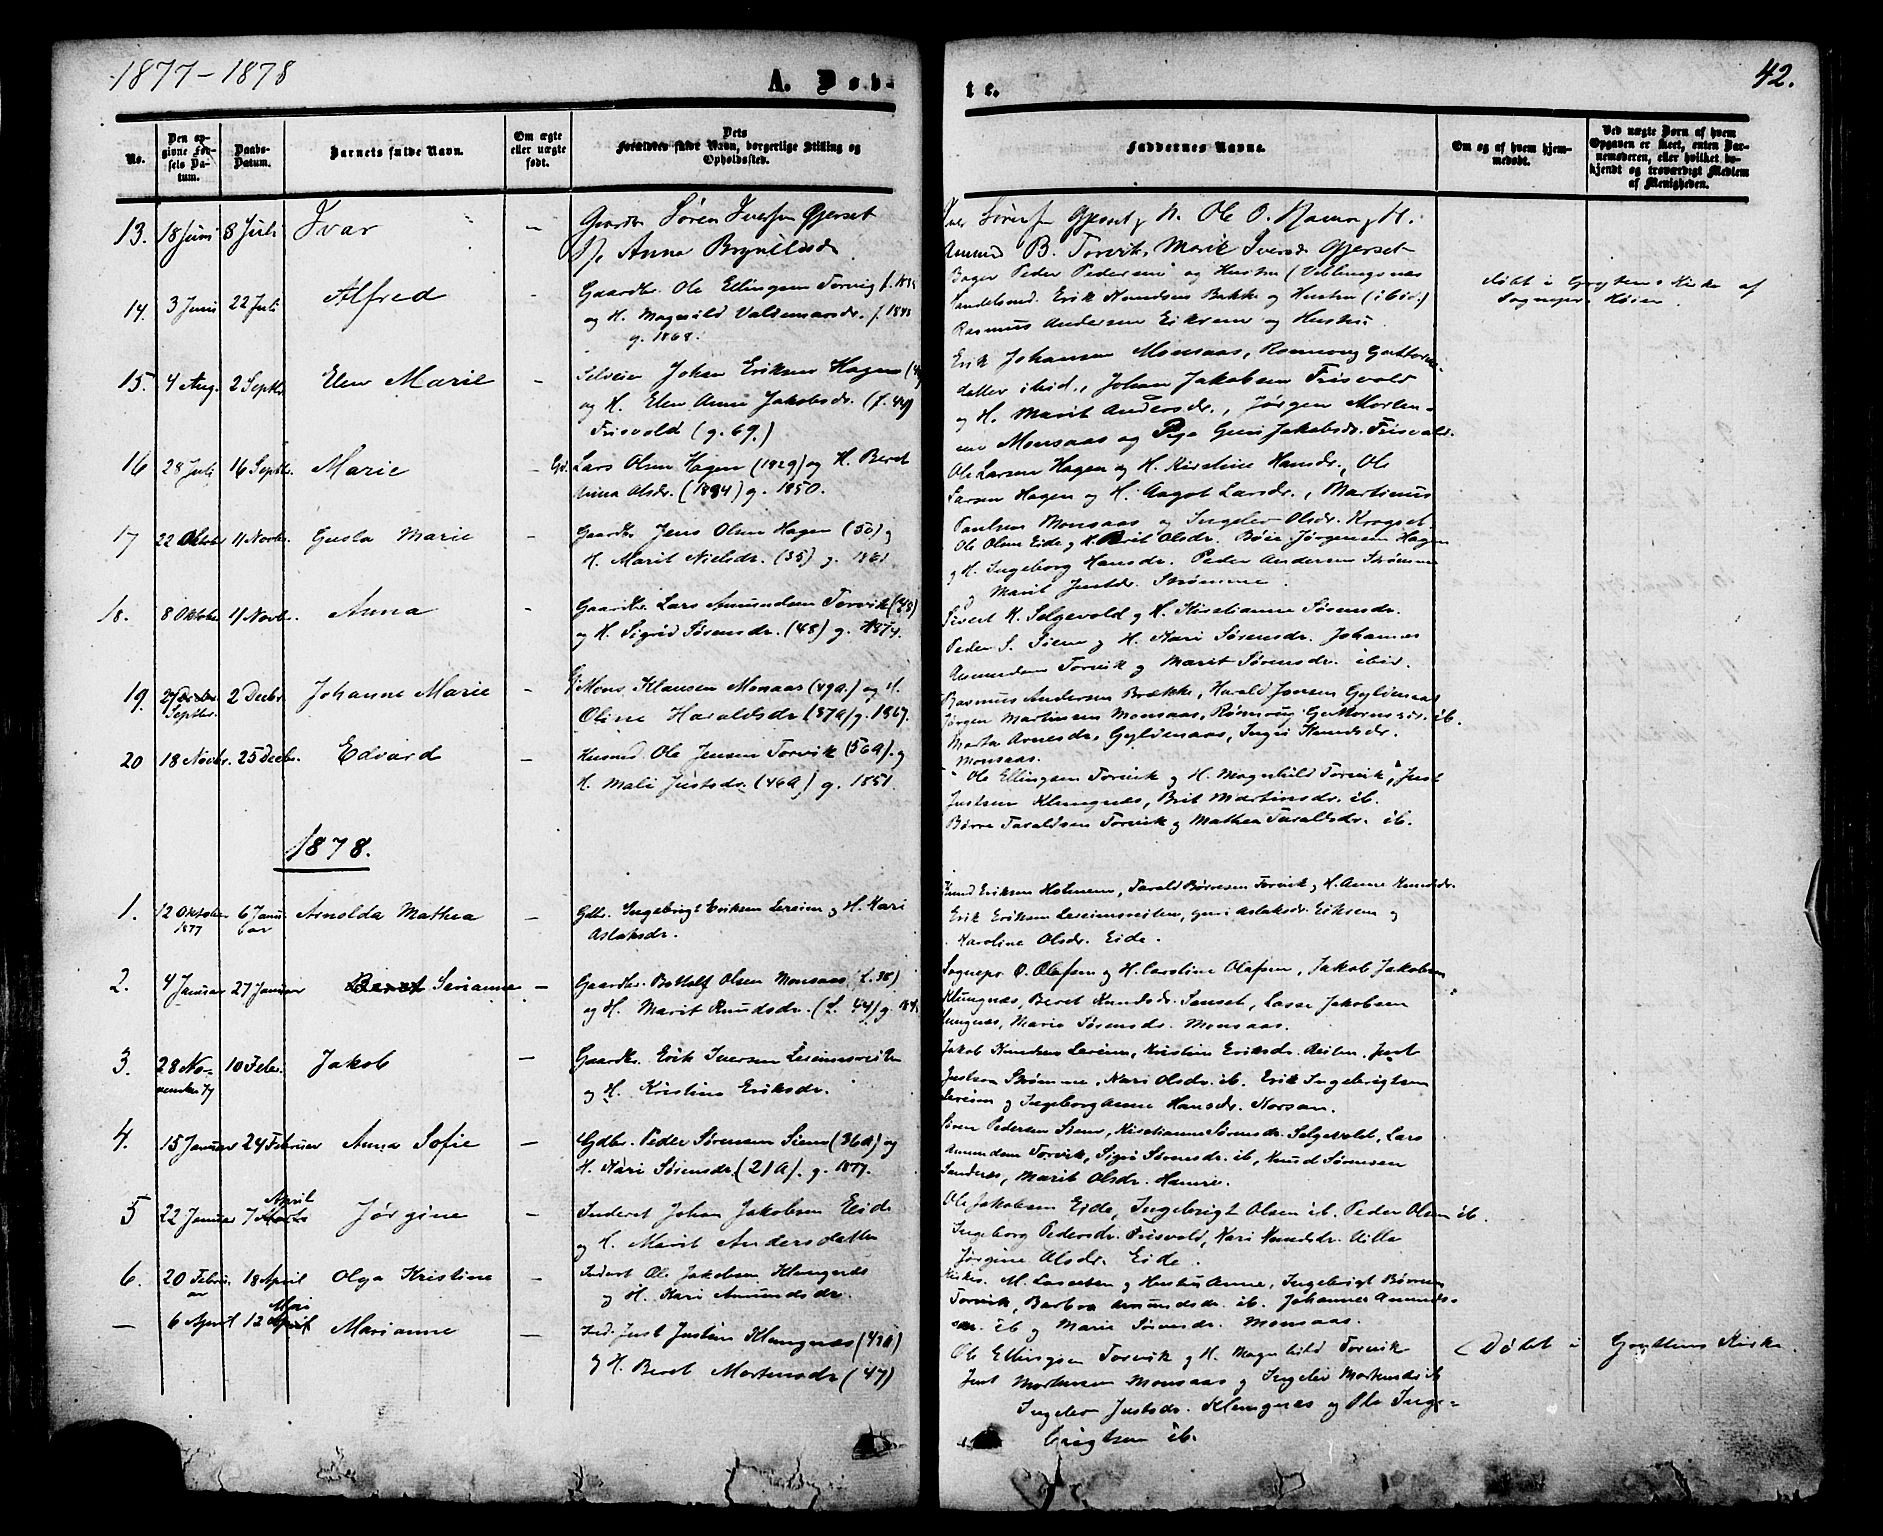 1877-1878
A. Døb-
te.
42.
No.
Den op-
givne Før-
sels Da-
tum.
Daabs-
Datum.
Barnets fulde Navn.
Om ægte
eller uægte
født.
Dets
Forældres fulde Navn, borgerlige Stilling og
Opholdssted.
Faddernes Navne.
Om og af hvem hjem-
medøbt.
Ved uægte Børn af hvem
Opgaven er skeet, enten Bar-
nemoderen, eller hvilket be-
kjendt og troværdigt Medlem
af Menigheden.
13. 18 Juni 8 Juli Ivar - Gaardbr. Søren Iversen Gjerset
Anna Brynildsdr.
Amund B. Torvik, Marit Iversdr. Gjerset
14. 3 Juni 22 Juli Alfred - Gaardbr. Ole Ellingsen Torvig f.
og H. Magnild Valdemarsdr. f. 1843
g. 1868.
Bager Peder Pedersen og Hustru (Veblungsnæs
Landelsmd. Erik Knudsen Bakke og Hustru (ibid.)
Rasmus Andersen Eikrem og Hustru
døbt i Gryttens Kirke af
Sognepr. Kjær
15. 4 Aug. 2 Septbr. Elen Marie - Selveier Johan Eriksen Hagen
og H. Elen Anne Jakobsdr. (f. 44)
Frisvold (g. 69.)
Erik Johansen Monsaas, Rønnoug Guttorms-
datter ibid., Johan Jakobsen Frisvold
og H. Marit Andersdr., Jørgen Morten-
sen Monsaas og Pige Guri Jakobsdr. Frisvold.
16 28 Juli 16 Septbr. Marie - Gd. Lars Olsen Hagen (1829) og H. Beret
Anna Olsdr. (1834) g. 1850.
Ole Larsen Hagen og H. Kirstine Hansdr., Ole
Larsen Hagen og H. Aagot Larsdr., Martinus
Paulsen Monsaas og Ingelev Olsdr. Krogset.
17 22 Oktober 11 Novbr. Gusta Marie - Gaardbr. Jens Olsen Hagen (50) og
H. Marit Nielsdr. (35) g. 1861
Ole Olsen Eide og H. Brit Olsdr. Bøie Jørgensen Hagen
og H. Ingeborg Hansdr. Peder Andersen Strømme
og Marit Justdr. Strømme.
18. 8 Oktober 11 Novbr. Anna - Gaardbr. Lars Amundsen Torvik (48)
og H. Sigrid Sørensdr. (48) g. 1874.
Sivert K. Solgevold og H. Kristianne Sørensdr.
Peder S. Siem og H. Kari Sørensdr. Johannes
Amundsen Torvik og Marit Sørensdr. ibid.
19. 2 Septbr. 2 Decbr. Johanne Marie - Mons Klausen Monsaas (49a.) og H.
Oline Haraldsdr (37a) g. 1867.
Rasmus Andersen Brække, Harald Jonsen Gyldenaas
Jørgen Martinsen Monsaas, Rønnoug Guttormsdr. ib.
Marta Arnesdr. Gyldenaas, Ingri Knudsdr.
Monsaas.
20 18 Novbr. 25 Decbr. Edvard - Husmd. Ole Jensen Torvik (56a). og
H. Mali Justsdr. (46a) g. 1851.
Ole Ellingsen Torvik og H. Magnhild Torvik, Just
Justsen Klungnæs, Brit Martinsdr. ib.
Børre Taraldsen Torvik og Mathea Taraldsdr. ib.
1878.
1. 12 Oktober 1877 6 Januar Arnolda Mathea - Gdbr. Ingebrigt Eriksen Lereim og H. Kari
Aslaksdr.
Knud Eriksen Holmem, Tarald Børresen Torvik og H. Anne Knudsdr.
Erik Eriksen Lereimsreiten, Guri Aslaksdr. Eiksem og
Karoline Olsdr. Eide.
2. 4 Januar 27 Januar Beret Serianne - Gaardbr. Bottolf Olsen Monsaas (f. 38)
og H. Marit Knudsdr. (f. 44) g.
Sognepr. O. Olafsen og H. Caroline Olafsen, Jakob Jakobsen
Klungnæs, Beret Knudsdr. Sanset, Lasse Jakobsen
Klungnæs, Marie Sørensdr. Monsaas.
3. 28 No-
vember 77 10 Febr. Jakob - Gaardbr. Erik Iversen Lereimsreiten
og H. Kristine Eriksdr.
Jakob Knudsen Lereim, Kristine Eriksdr. Reiten, Just
Justsen Strømme, Kari Olsdr. ib. Erik Ingebrigtsen
Lereim og Ingeborg Anne Hansdr. Korsan.
4. 15 Januar 24 Februar Anna Sofie - Gdbr. Peder Sørensen Siem (36a) og
H. Kari Sørensdr. (21a). g. 1877.
Søren Pedersen Siem, Kristianne Sørensdr. Solgevold, Lars
Amundsen Torvik, Sigri Sørensdr. ib, Knud Sørensen
Sandnes, Marit Olsdr. Hamre.
5 22 Januar 7 April Marts Jørgine - Inderst Johan Jakobsen Eide
og H. Marit Andersdatter
Ole Jakobsen Eide, Ingebrigt Olsen ib. Peder Olsen ib.
Ingeborg Pedersdr. Frisvold, Kari Knudsdr. Villa
Jørgine Olsdr. Eide.
6. 20 Febru-
ar 18 April Olga Kristine - Inderst Ole Jakobsen Klungnæs
og H. Kari Amundsdr.
M. Lassesen og Hustru Anne, Ingebrigt Børresen
Torvik, Barbra Amundsdr. ib. Johannes Amunds-
sen. ib og Marie Sørensdr. Monsaas.
- 6 April 12 Mai April Marianne - Ind. Just Justsen Klungnæs (43a)
og H. Beret Mortensdr (47)
Ole Ellingsen Torvik og H. Magnhild Torvik
Just Mortensen Monsaas og Ingelev Mortensdr ib
Ingelev Justsdr. Klungnæs og Ole Inge-
brigtsen ib.
(Døbt i Gryttens Kirke.